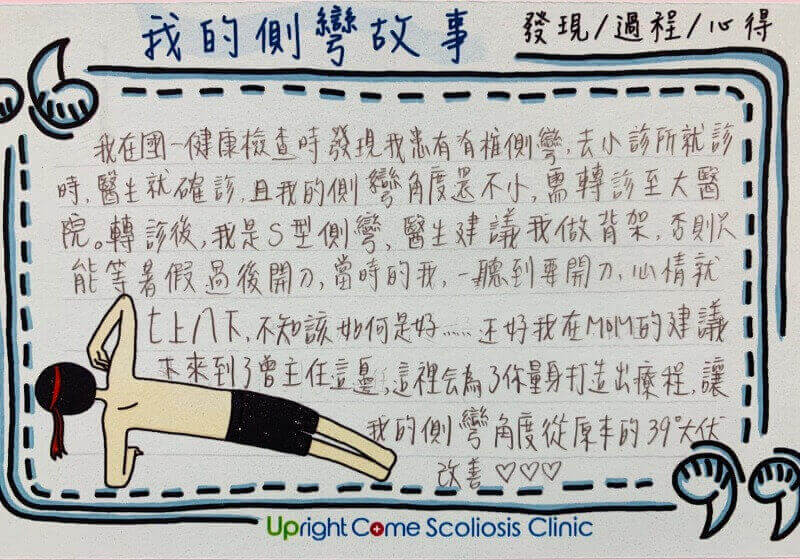 我的側彎故事 發現/過程/心得
我在國一健康檢查時發現我患有有椎側彎,去小診所就診
時,醫生就確診,且我的側彎角度還不小,需轉診至大醫
院。轉診後,我是S型側彎,醫生建議我做背架,否則只
能等暑假過後開刀,當時的我,一聽到要開刀,心情就
七上八下,不知該如何是好……还好我在MOM的建議
下來到了曾主任這邊,這裡会為了你量身打造出療程,讓
我的側彎角度從原本的39°大伏
改善♡♡♡
Upright Come Scoliosis Clinic